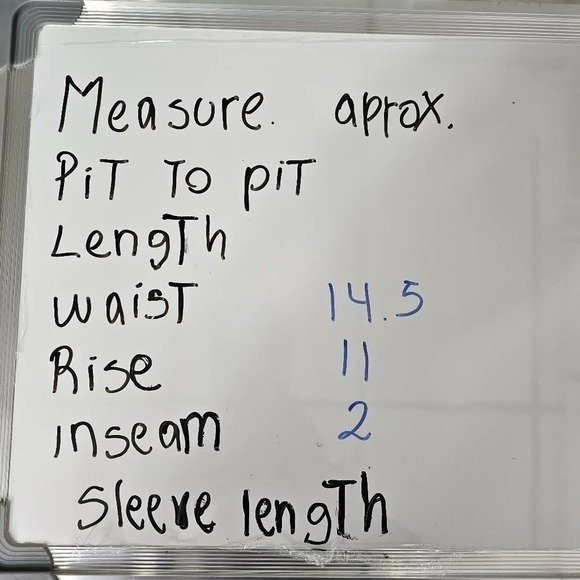 Measure. aprox.
PiT To piT
LengTh
waisT 14.5
Rise 11
inseam 2
Sleeve lengTh